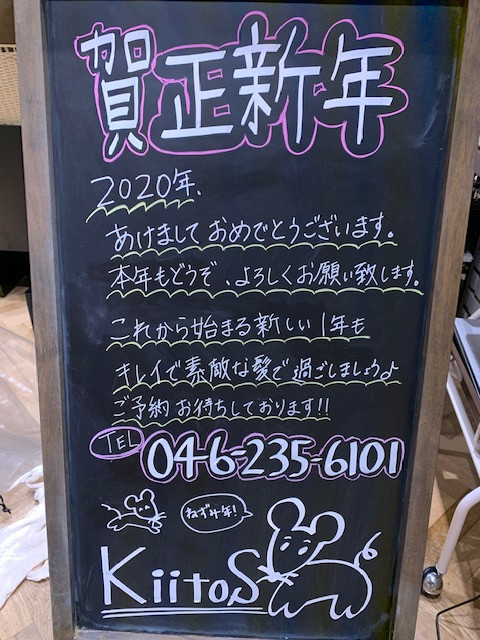 賀正新年
2020年、
あけましておめでとうございます。
本年もどうぞ、よろしくお願い致します。
これから始まる新しい1年も
キレイで素敵な髪で過ごしましょうよ
ご予約お待ちしております!!
TEL 046-235-6101
ねずみ年!
KiitoS